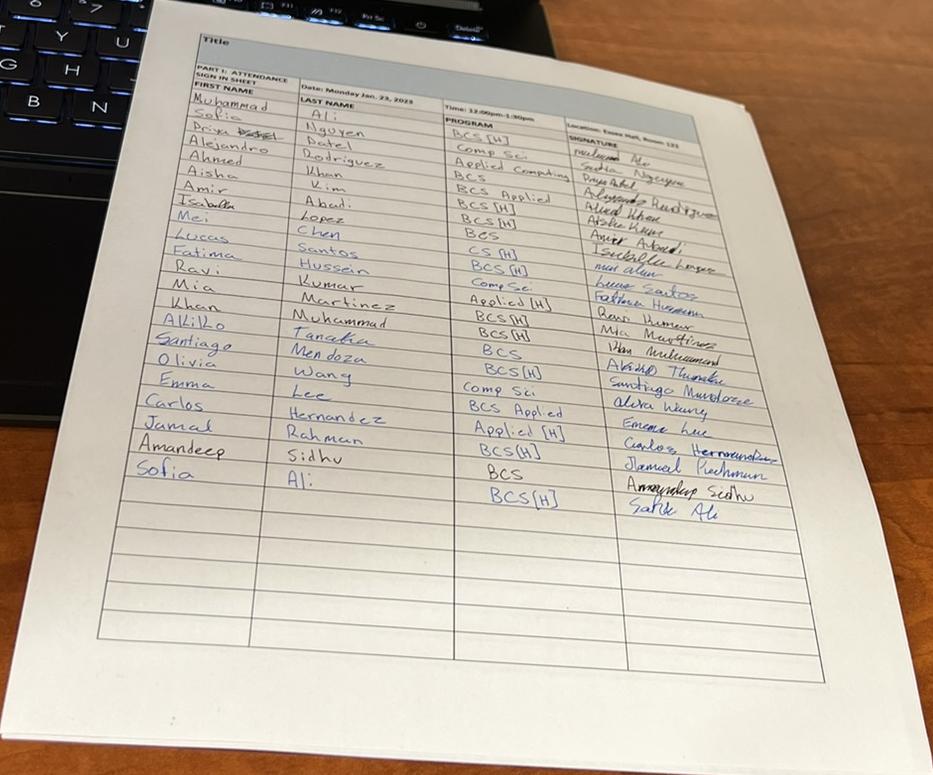 6 7 F11 F12 Prt Sc Delete
Y U
G H
B N
Title
PART 1: ATTENDANCE SIGN IN SHEET Date: Monday Jan. 23, 2023 Time: 12:00pm-1:30pm Location: Essex Hall, Room 122
FIRST NAME LAST NAME PROGRAM SIGNATURE
Muhammad Ali BCS [H] Ali
Sofia Nguyen Comp Sci Sofia Nguyen
Priya Patel Applied Computing Priya Patel
Alejandro Rodriguez BCS Alejandro Rodriguez
Ahmed Khan BCS Applied Ahmed Khan
Aisha Kim BCS [H] Aisha Kim
Amir Abadi BCS [H] Amir Abadi
Isabella Lopez BCS Isabella Lopez
Mei Chen CS [H]
Lucas Santos BCS [H] Lucas Santos
Fatima Hussein Comp Sci Fatima Hussein
Ravi Kumar Applied [H] Ravi Kumar
Mia Martinez BCS[H] Mia Martinez
Khan Muhammad BCS[H] Khan Muhammad
Akiko Tanaka BCS
Santiago Mendoza BCS[H] Santiago Mendoza
Olivia Wang Comp Sci Olivia Wang
Emma Lee BCS Applied Emma Lee
Carlos Hernandez Applied [H] Carlos Hernandez
Jamal Rahman BCS[H] Jamal Rahman
Amandeep Sidhu BCS Amandeep Sidhu
Sofia Ali BCS[H] Ali